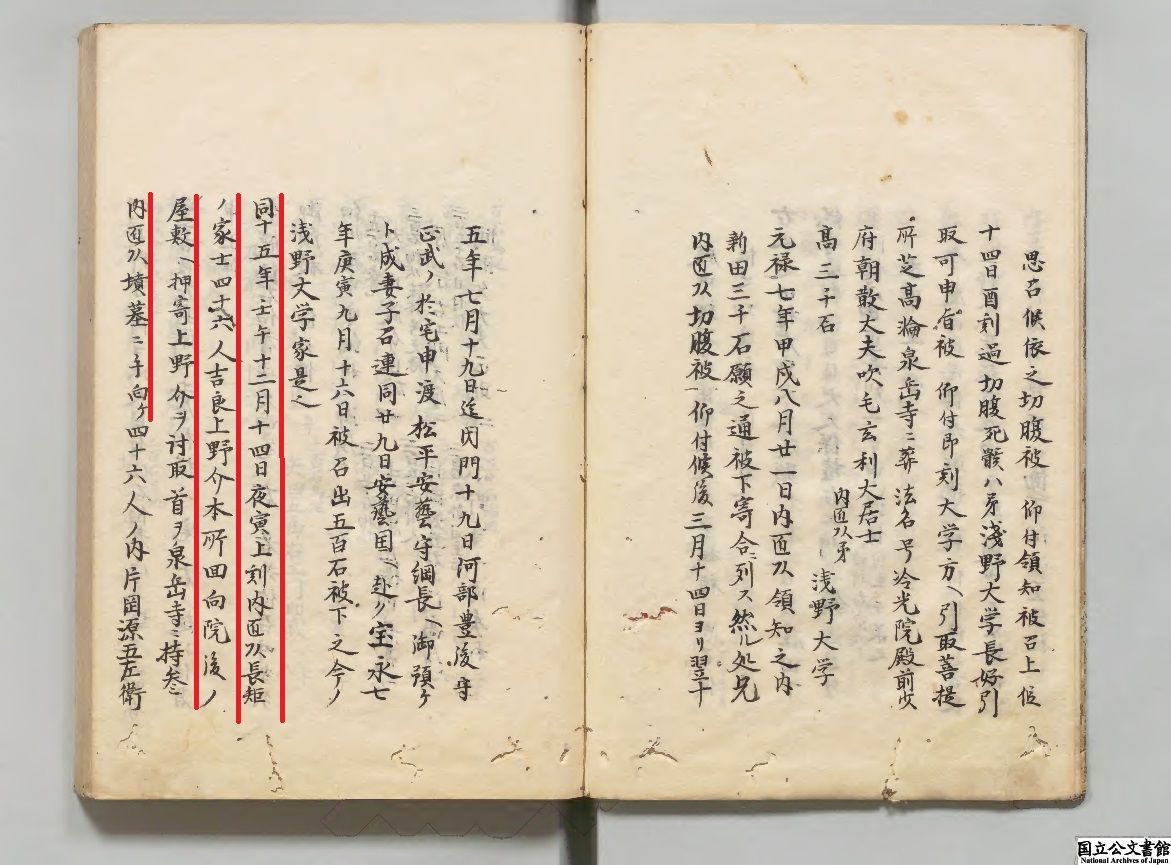 思召候依之切腹被 仰付領知被召上 位
十四日酉刻過切腹死骸ハ弟浅野大学長好引
取可申旨被 仰付即刻大学方ヘ引取菩提
所芝高輪泉岳寺ニ葬 法名号冷光院殿前少
府朝散大夫吹毛玄利大居士
内匠以弟
高三千石 浅野大学
元禄七年甲戌八月廿一日内匠以領知之内
新田三千石願之通被下寄合ニ列ス然ル処兄
内匠以切腹被 仰付候後三月十四日ヨリ翌十
五年七月十九日迄閉門十九日阿部豊後守
正武ノ於宅申渡松平安藝守綱長ヘ御預ケ
ト成妻子召連同廿九日安藝国ヘ赴ク宝永七
年庚寅九月十六日被召出五百石被下之今ノ
浅野大学家是也
同十五年壬午十二月十四日夜寅上刻内匠以長矩
ノ家士四十六人吉良上野介本所回向院後ノ
屋敷ヘ押寄上野介ヲ討取首ヲ泉岳寺ニ持参シ
内匠以墳墓ニ手向ケ四十六人ノ内片岡源五左衛
国立公文書館
National Archives of Japan